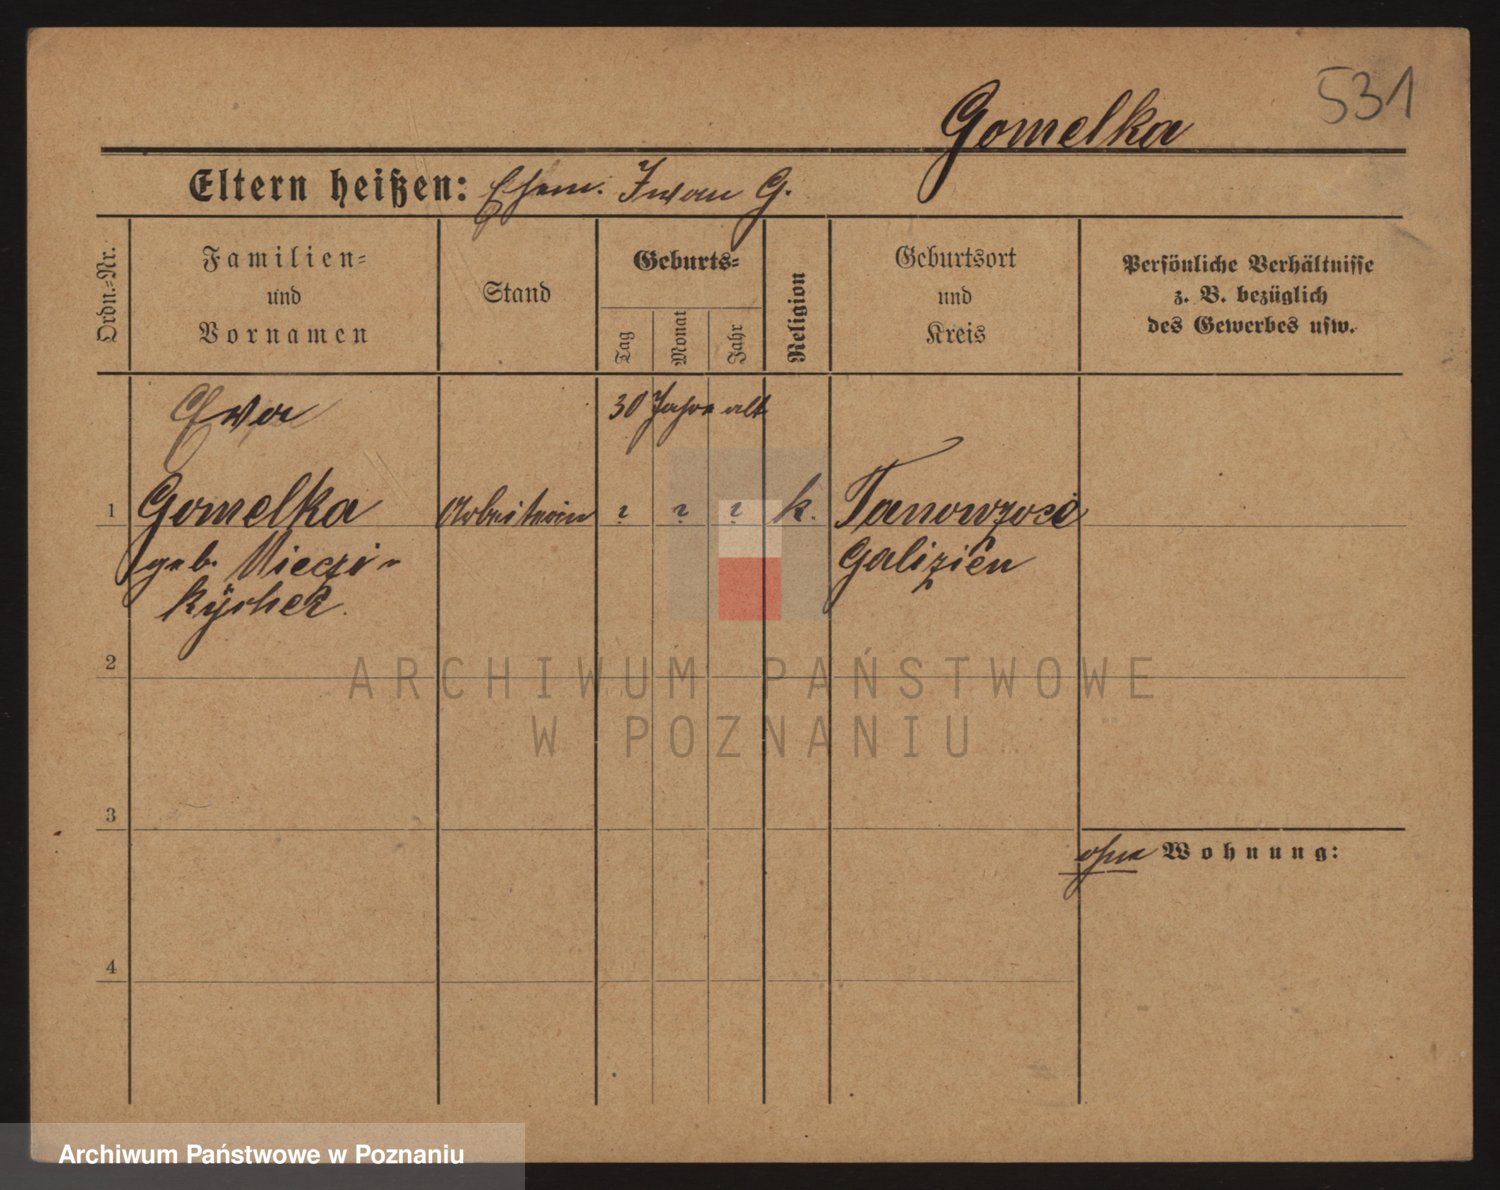 531
Gomelka
Eltern heißen: Ehem. Iwan G.
Ordn.-Nr.
Familien-
und
Vornamen
Stand
Geburts-
Tag
Monat
Jahr
Religion
Geburtsort
und
Kreis
Persönliche Verhältnisse
z. B. bezüglich
des Gewerbes usw.
Ewa 30 Jahre alt
1 Gomelka Arbeiterin ? ? ? k.
geb. Galizien
2
ARCHIWUM PAŃSTWOWE
W POZNANIU
3
ohne Wohnung:
4
Archiwum Państwowe w Poznaniu